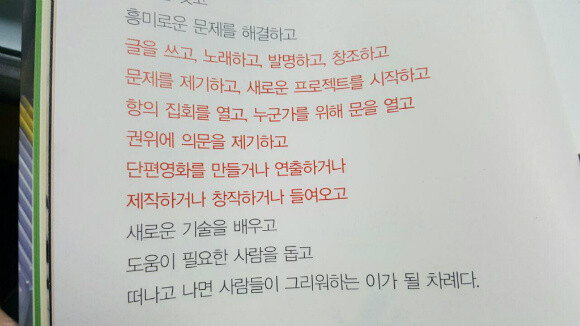 흥미로운 문제를 해결하고
글을 쓰고, 노래하고, 발명하고, 창조하고
문제를 제기하고, 새로운 프로젝트를 시작하고
항의 집회를 열고, 누군가를 위해 문을 열고
권위에 의문을 제기하고
단편영화를 만들거나 연출하거나
제작하거나 창작하거나 들여오고
새로운 기술을 배우고
도움이 필요한 사람을 돕고
떠나고 나면 사람들이 그리워하는 이가 될 차례다.